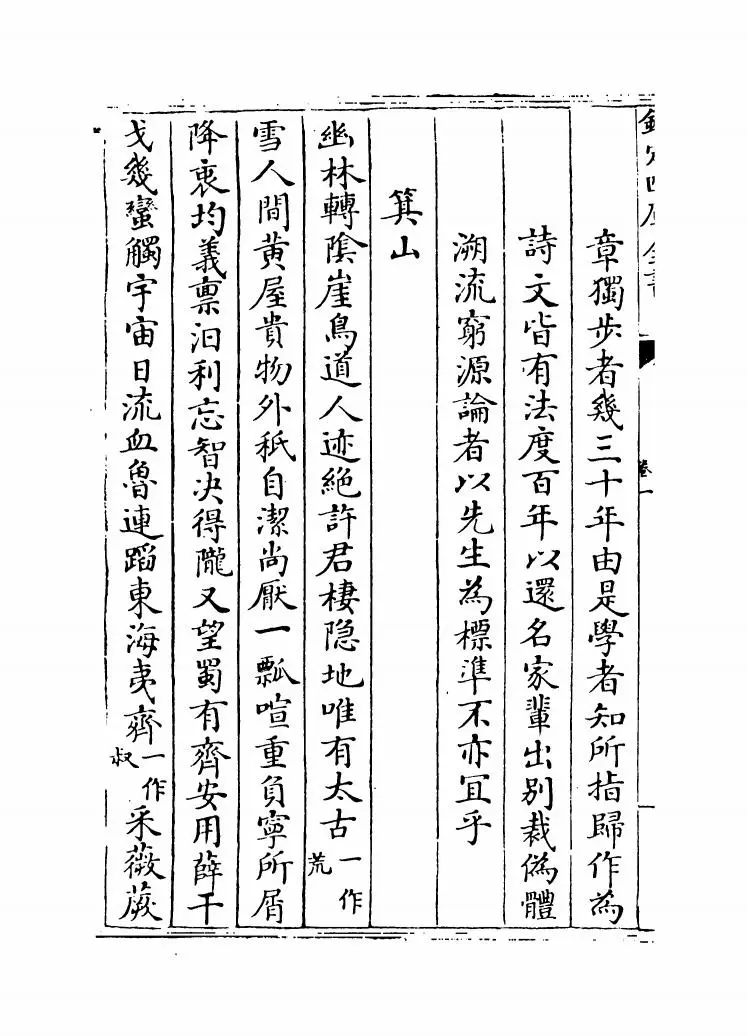 欽定四庫全書
卷一
章獨步者幾三十年由是學者知所指歸作為
詩文皆有法度百年以還名家輩出別裁偽體
溯流窮源論者以先生為標準不亦宜乎
箕山
幽林轉陰崖鳥道人迹絶許君棲隐地唯有太古一作荒
雪人間黄屋貴物外秖自潔尚厭一瓢喧重負寧所屑
降衷均義禀汩利忘智決得隴又望蜀有齊安用薛干
戈幾蠻觸宇宙日流血魯連蹈東海夷齊一作叔采薇蕨